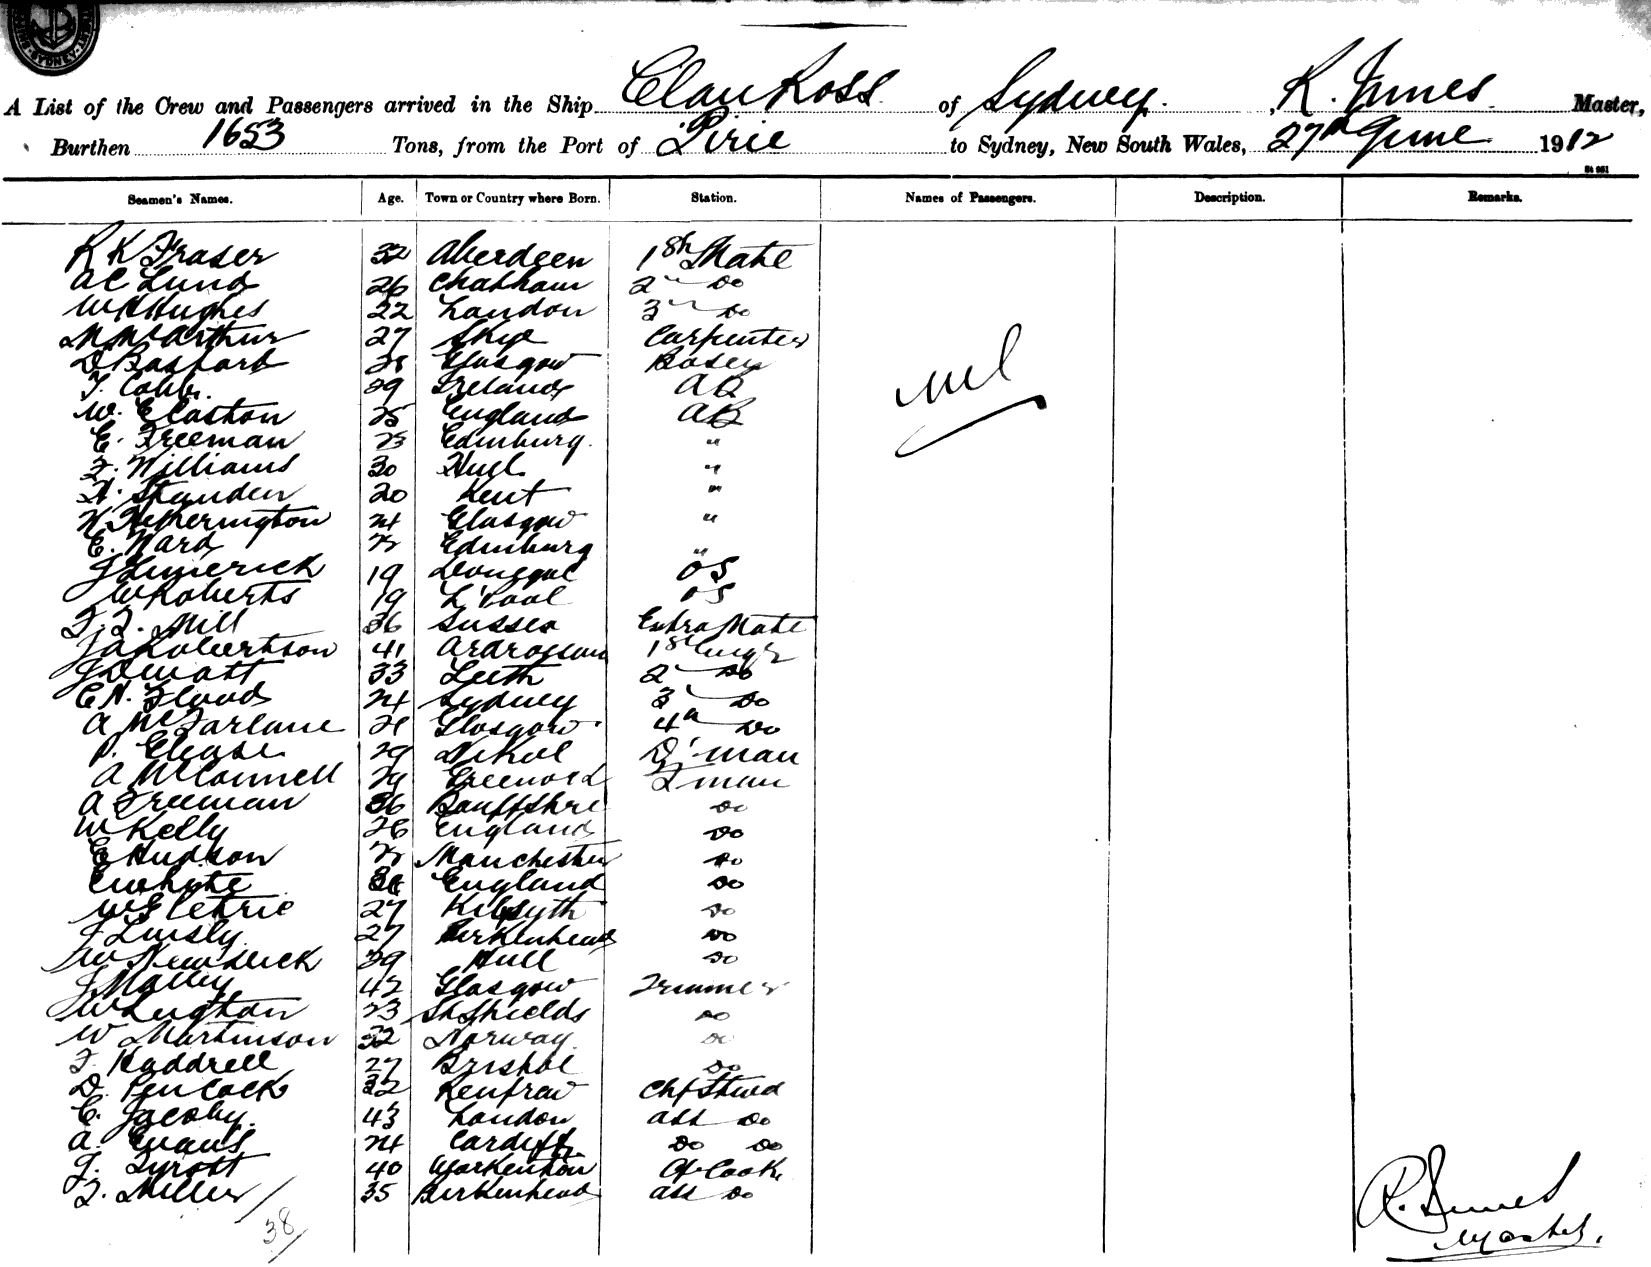 SYDNEY
A List of the Crew and Passengers arrived in the Ship Clan Ross of Sydney, R. Innes Master,
Burthen 1653 Tons, from the Port of Pirie to Sydney, New South Wales, 27th June 1912
Seamen's Names. Age. Town or Country where Born. Station. Names of Passengers. Description. Remarks.
R K Fraser 32 Aberdeen 1st Mate
A C Lund 26 Chatham 2 Do
W H Hughes 22 London 3 Do
M McArthur 27 Skye Carpenter
D Basford Glasgow Bosen
T. Cobb. 29 Ireland AB
W. Elaston 25 England AB
nil
E. Freeman 23 Edinburg. "
F. Williams 30 Hull "
H. Standen 20 Kent "
H Hetherington 24 Glasgow "
E. Ward Edinburg "
J Limerick 19 Donegal OS
W Roberts 19 L'Pool OS
F. F. Mill 36 Sussex Extra Mate
J A Robertson 41 Ardrossan 1st Engr
J D Watt 33 Leith 2 Do
E H. Flood 24 Sydney 3 Do
A McFarlane 21 Glasgow 4th Do
P. 29 D'man
A McConnell 29 Greenock Fman
A Freeman 36 Banffshre Do
W Kelly 26 England Do
E Hudson Manchester Do
E White England Do
W G Petrie 27 Kilsyth Do
J 27 Birkenhead Do
W 29 Hull Do
J Malley 42 Glasgow Trimmer
W Lughton 23 Sth Shields Do
W Martinson 32 Norway Do
F. Haddrell 27 Bristol Do
D. Pencock 32 Renfrew Chf Stwd
C. Jacoby. 43 London Ast Do
A. Evans 24 Cardiff Do Do
J. 40 Cook
J. Miller 35 Birkenhead Ast Do
38
R. Innes
Master.